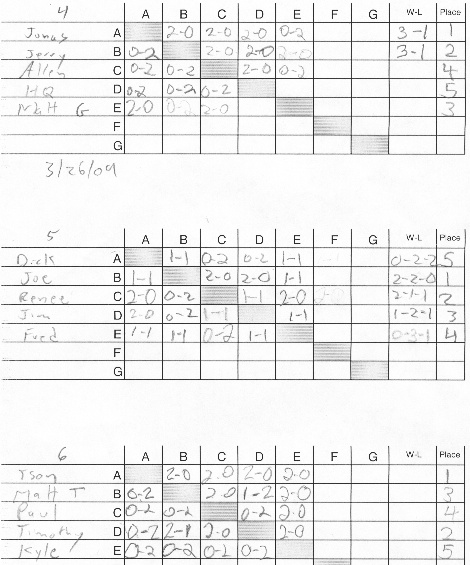 4 A B C D E F G W-L Place
Jonas A 2-0 2-0 2-0 0-2 3-1 1
Jerry B 0-2 2-0 2-0 2-0 3-1 2
Allen C 0-2 0-2 2-0 0-2 4
HQ D 0-2 0-2 0-2 5
Matt G E 2-0 0-2 2-0 3
F
G
3/26/09
5 A B C D E F G W-L Place
Dick A 1-1 0-2 0-2 1-1 0-2-2 5
Joe B 1-1 2-0 2-0 1-1 2-2-0 1
Renee C 2-0 0-2 1-1 2-0 2-1-1 2
Jim D 2-0 0-2 1-1 1-1 1-2-1 3
Fred E 1-1 1-1 0-2 1-1 0-3-1 4
F
G
6 A B C D E F G W-L Place
Tson A 2-0 2-0 2-0 2-0 1
Matt T B 0-2 2-0 1-2 2-0 3
Paul C 0-2 0-2 0-2 2-0 4
Timothy D 0-2 2-1 2-0 2-0 2
Kyle E 0-2 0-2 0-2 0-2 5